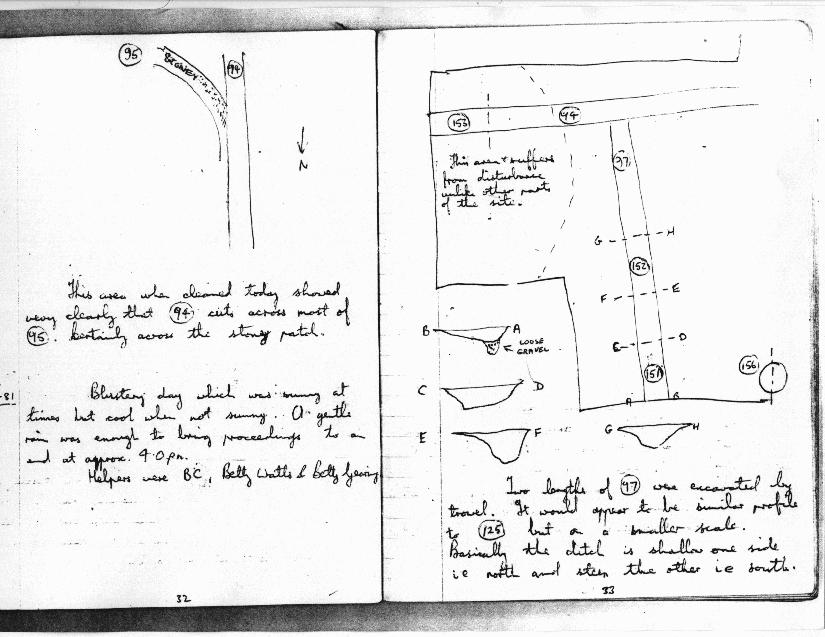 95
STONEY
94
N
This area when cleaned today showed
very clearly that 94 cuts across most of
95. Certainly across the stoney patch.
-81
Blustery day which was sunny at
times but cool when not sunny. A gentle
rain was enough to bring proceedings to an
end at approx. 4.0 pm.
Helpers were BC, Betty Watts & Betty Gearing
32
153
94
97
This area suffers
from disturbance
unlike other parts
of the site.
G H
152
F E
E D
151
156
A B
B A
LOOSE
GRAVEL
C D
E F
G H
Two lengths of 97 were excavated by
trowel. It would appear to be similar profile
to 125 but on a smaller scale.
Basically the ditch is shallow one side
i.e north and steep the other i.e south.
33